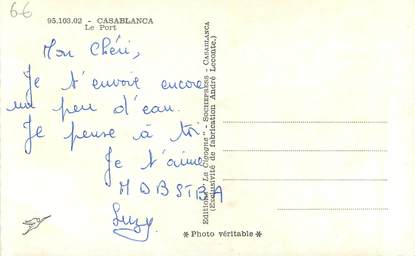 66
95.103.02 - CASABLANCA
Le Port
Mon Chéri,
Je t'envoie encore
un peu d'eau.
Je pense à toi
Je t'aime
MDBSTBA
Suzy
Editions "La Cigogne" - SOCHEPRESS - CASABLANCA
(Exclusivité de fabrication André Leconte.)
*Photo véritable*